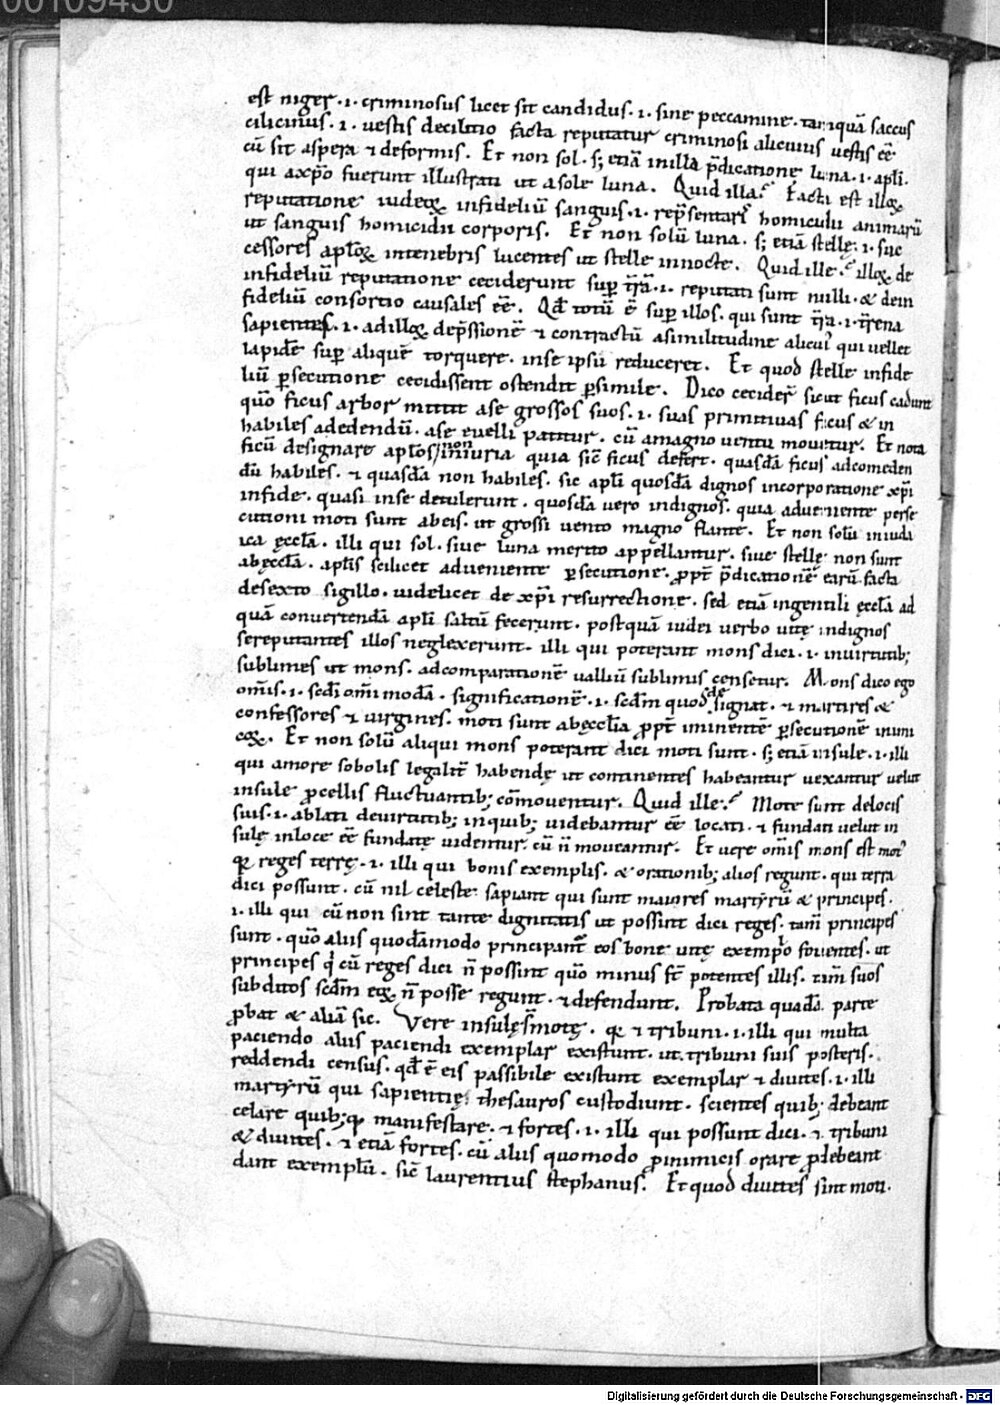 00109430
est niger .i. criminosus licet sit candidus .i. sine peccamine. tanquā saccus
cilicinus .i. vestis de cilitio facta reputatur criminosi alicuius vestis eē
cū sit aspera ⁊ deformis. Et non sol. s; etiā in illa p̄dicatione luna .i. apl̄i.
qui a xp̄o fuerunt illustrati ut a sole luna. Quid illa? Facta est illoꝝ
reputatione iudeoꝝ infideliū sanguis .i. rep̄sentatʳ homicidii animarū
ut sanguis homicidii corporis. Et non solū luna. s; etiā stellę .i. suc
cessores aploꝝ in tenebris lucentes ut stelle in nocte. Quid ille? illoꝝ de
infideliū reputatione ceciderunt suꝑ tr̄ā .i. reputati sunt nulli. & de in
fideliū consortio causales eē. Qd̄ totū ē suꝑ illos. qui sunt tr̄a .i. tr̄ena
sapientes .i. ad illoꝝ dep̄ssionē ⁊ contractū a similitudine alicuiꝰ qui vellet
lapidē suꝑ aliquē torquere. in se ipsū reduceret. Et quod stelle infide
liū ꝑsecutione cecidissent ostendit ꝑ simile. Dico cecider̄ sicut ficus cadunt
quō ficus arbor mittit a se grossos suos .i. suas primitivas ficus & in
habiles ad edendū. a se evelli patitur. cū a magno ventu movetur. Et nota
ficū designare aplos / non iniuria quia sic̄ ficus defert. quasdā ficus ad comeden
dū habiles. ⁊ quasdā non habiles. sic apl̄i quosdā dignos incorporatione xp̄i
in fide. quasi in se detulerunt. quosdā vero indignos. quia adveniente perse
cutioni moti sunt ab eis. ut grossi vento magno flante. Et non solū in iudi
ica ęccl̄a. illi qui sol. sive luna merito appellantur. sive stellę non sunt
ab ęccl̄a. apl̄is scilicet adveniente ꝑsecutione. ꝓpt̄ p̄dicationē earū facta
de sexto sigillo. videlicet de xp̄i resurrectione. sed etiā in gentili ęccl̄a ad
quā convertendā apl̄i saltū fecerunt. postquā iudei verbo vitę indignos
se reputantes illos neglexerunt. illi qui poterant mons dici .i. in virtutib;
sublimes ut mons. ad comparationē valliū sublimis censetur. Mons dico ego
om̄is .i. scd̄i om̄imodā. significationē .i. scdm quod de signat. ⁊ martires &
confessores ⁊ virgines. moti sunt ab ęccl̄ia ꝓpt̄ iminentē ꝑsecutionē inimi
coꝝ. Et non solū aliqui mons poterant dici moti sunt. s; etiā insule .i. illi
qui amore sobolis legalit̄ habendę ut continentes habeantur vexantur velut
insule ꝓcellis fluctuantib; cōmoventur. Quid ille? Mote sunt de locis
suis .i. ablati de virtutib; in quib; videbantur eē locati. ⁊ fundati velut in
sulę in loce eē fundatę videntur. cū n̄ moveantur. Et vere om̄is mons est motꝰ
qꝛ reges terrę .i. illi qui bonis exemplis. & orationib; alios regunt. qui terra
dici possunt. cū nil celeste sapiant qui sunt maiores martyrū & principes.
.i. illi qui cū non sint tante dignitatis ut possint dici reges. tam̄ principes
sunt. quō aliis quodāmodo principant̄ eos bone vitę exemplo foventes. ut
principes qͥ cū reges dici n̄ possint quō minus st̄ potentes illis. tam̄ suos
subditos scdm eoꝝ n̄ posse regunt. ⁊ defendunt. Probata quadā parte
ꝓbat & aliā sic. Vere insulę st̄ motę. qꝛ ⁊ tribuni .i. illi qui multa
paciendo aliis paciendi exemplar existunt. ut tribuni suis posteris.
reddendi census. qd̄ ē eis passibile existunt exemplar ⁊ divites .i. illi
martyrū qui sapientię thesauros custodiunt. scientes quib; debeant
celare quib; qꝫ manifestare. ⁊ fortes .i. illi qui possunt dici. ⁊ tribuni
& divites. ⁊ etiā fortes. cū aliis quomodo ꝓ inimicis orare ꝓ debeant
dant exemplū. sic̄ laurentius stephanus. Et quod divites sint moti.
Digitalisierung gefördert durch die Deutsche Forschungsgemeinschaft - DFG